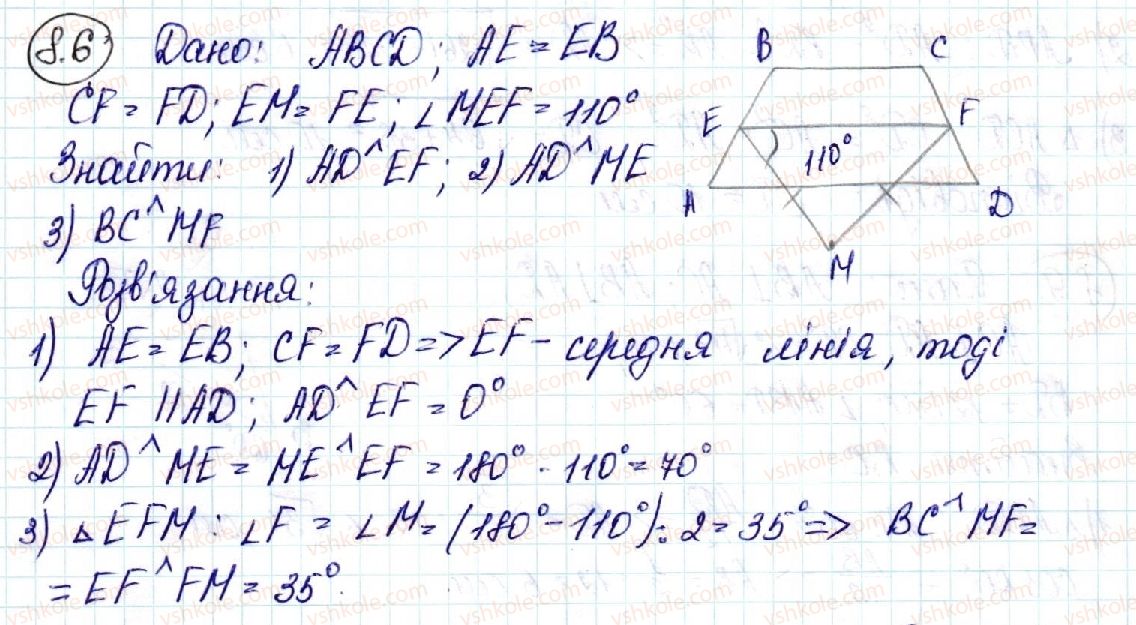 8.6
Дано: ABCD; AE = EB
CF = FD; EM = FE; ∠MEF = 110°
Знайти: 1) AD^EF; 2) AD^ME
3) BC^MF
Розв'язання:
1) AE = EB; CF = FD => EF - середня лінія, тоді
EF || AD; AD^EF = 0°
2) AD^ME = ME^EF = 180° - 110° = 70°
3) △EFM: ∠F = ∠M = (180° - 110°) : 2 = 35° => BC^MF =
= EF^FM = 35°.
B C
E F
110°
A D
M
vshkole.com